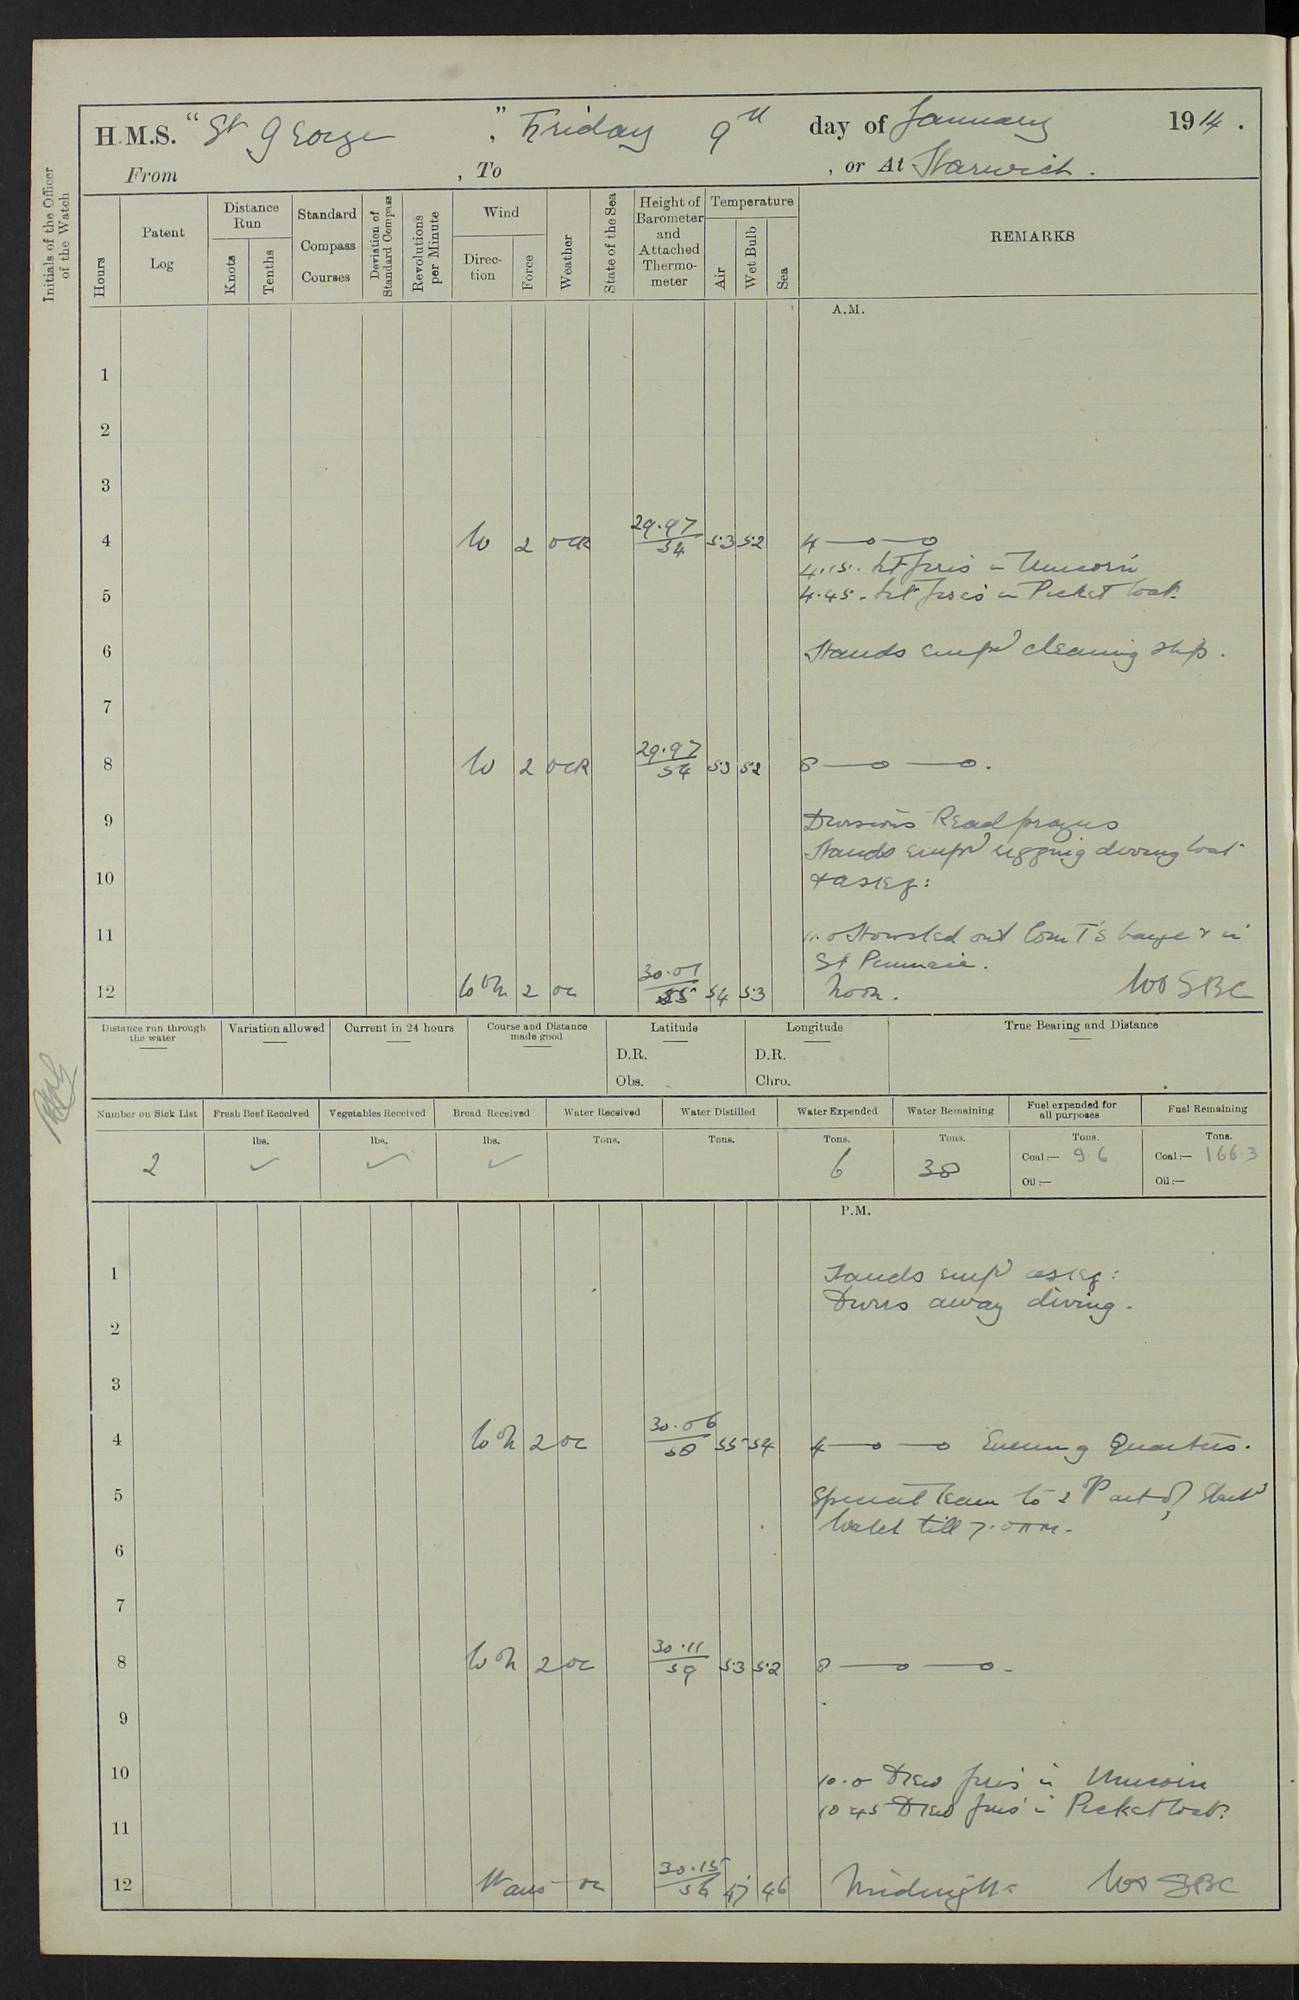 H.M.S. "St George", Friday 9th day of January 1914.
From , To , or At Harwich.
Initials of the Officer of the Watch
Hours
Patent Log
Distance Run
Knots
Tenths
Standard Compass Courses
Deviation of Standard Compass
Revolutions per Minute
Wind
Direction
Force
Weather
State of the Sea
Height of Barometer and Attached Thermometer
Temperature
Air
Wet Bulb
Sea
REMARKS
A.M.
1
2
3
4 W 2 ocR 29.97/54 53 52 4
4.15. Lit fires in Unicorn
5 4.45. Lit fires in Picket boat.
6 Hands empd cleaning ship.
7
8 W 2 ocR 29.97/54 53 52 8
9 Divisions Read prayers
Hands empd rigging diving boat
10 & as req:
11 11.0 Hoisted out
12 2 oc 30.01/55 54 53 Noon.
Distance run through the water
Variation allowed
Current in 24 hours
Course and Distance made good
Latitude
D.R.
Obs.
Longitude
D.R.
Chro.
True Bearing and Distance
Number on Sick List
2
Fresh Beef Received
lbs.
✓
Vegetables Received
lbs.
✓
Bread Received
lbs.
✓
Water Received
Tons.
Water Distilled
Tons.
Water Expended
Tons.
6
Water Remaining
Tons.
38
Fuel expended for all purposes
Tons.
Coal:— 9.6
Oil:—
Fuel Remaining
Tons.
Coal:— 166.3
Oil:—
P.M.
1 Hands empd as req:
Divers away diving.
2
3
4 2 oc 30.06/58 55 54 4 Evening Quarters.
5 Special leave to 2nd Part of Starbd
Watch till 7.0 AM.
6
7
8 2 oc 30.11/59 53 52 8
9
10 10.0 Drew fires in Unicorn
10.45 Drew fires in Picket boat.
11
12 oc 30.15/56 47 46 Midnight